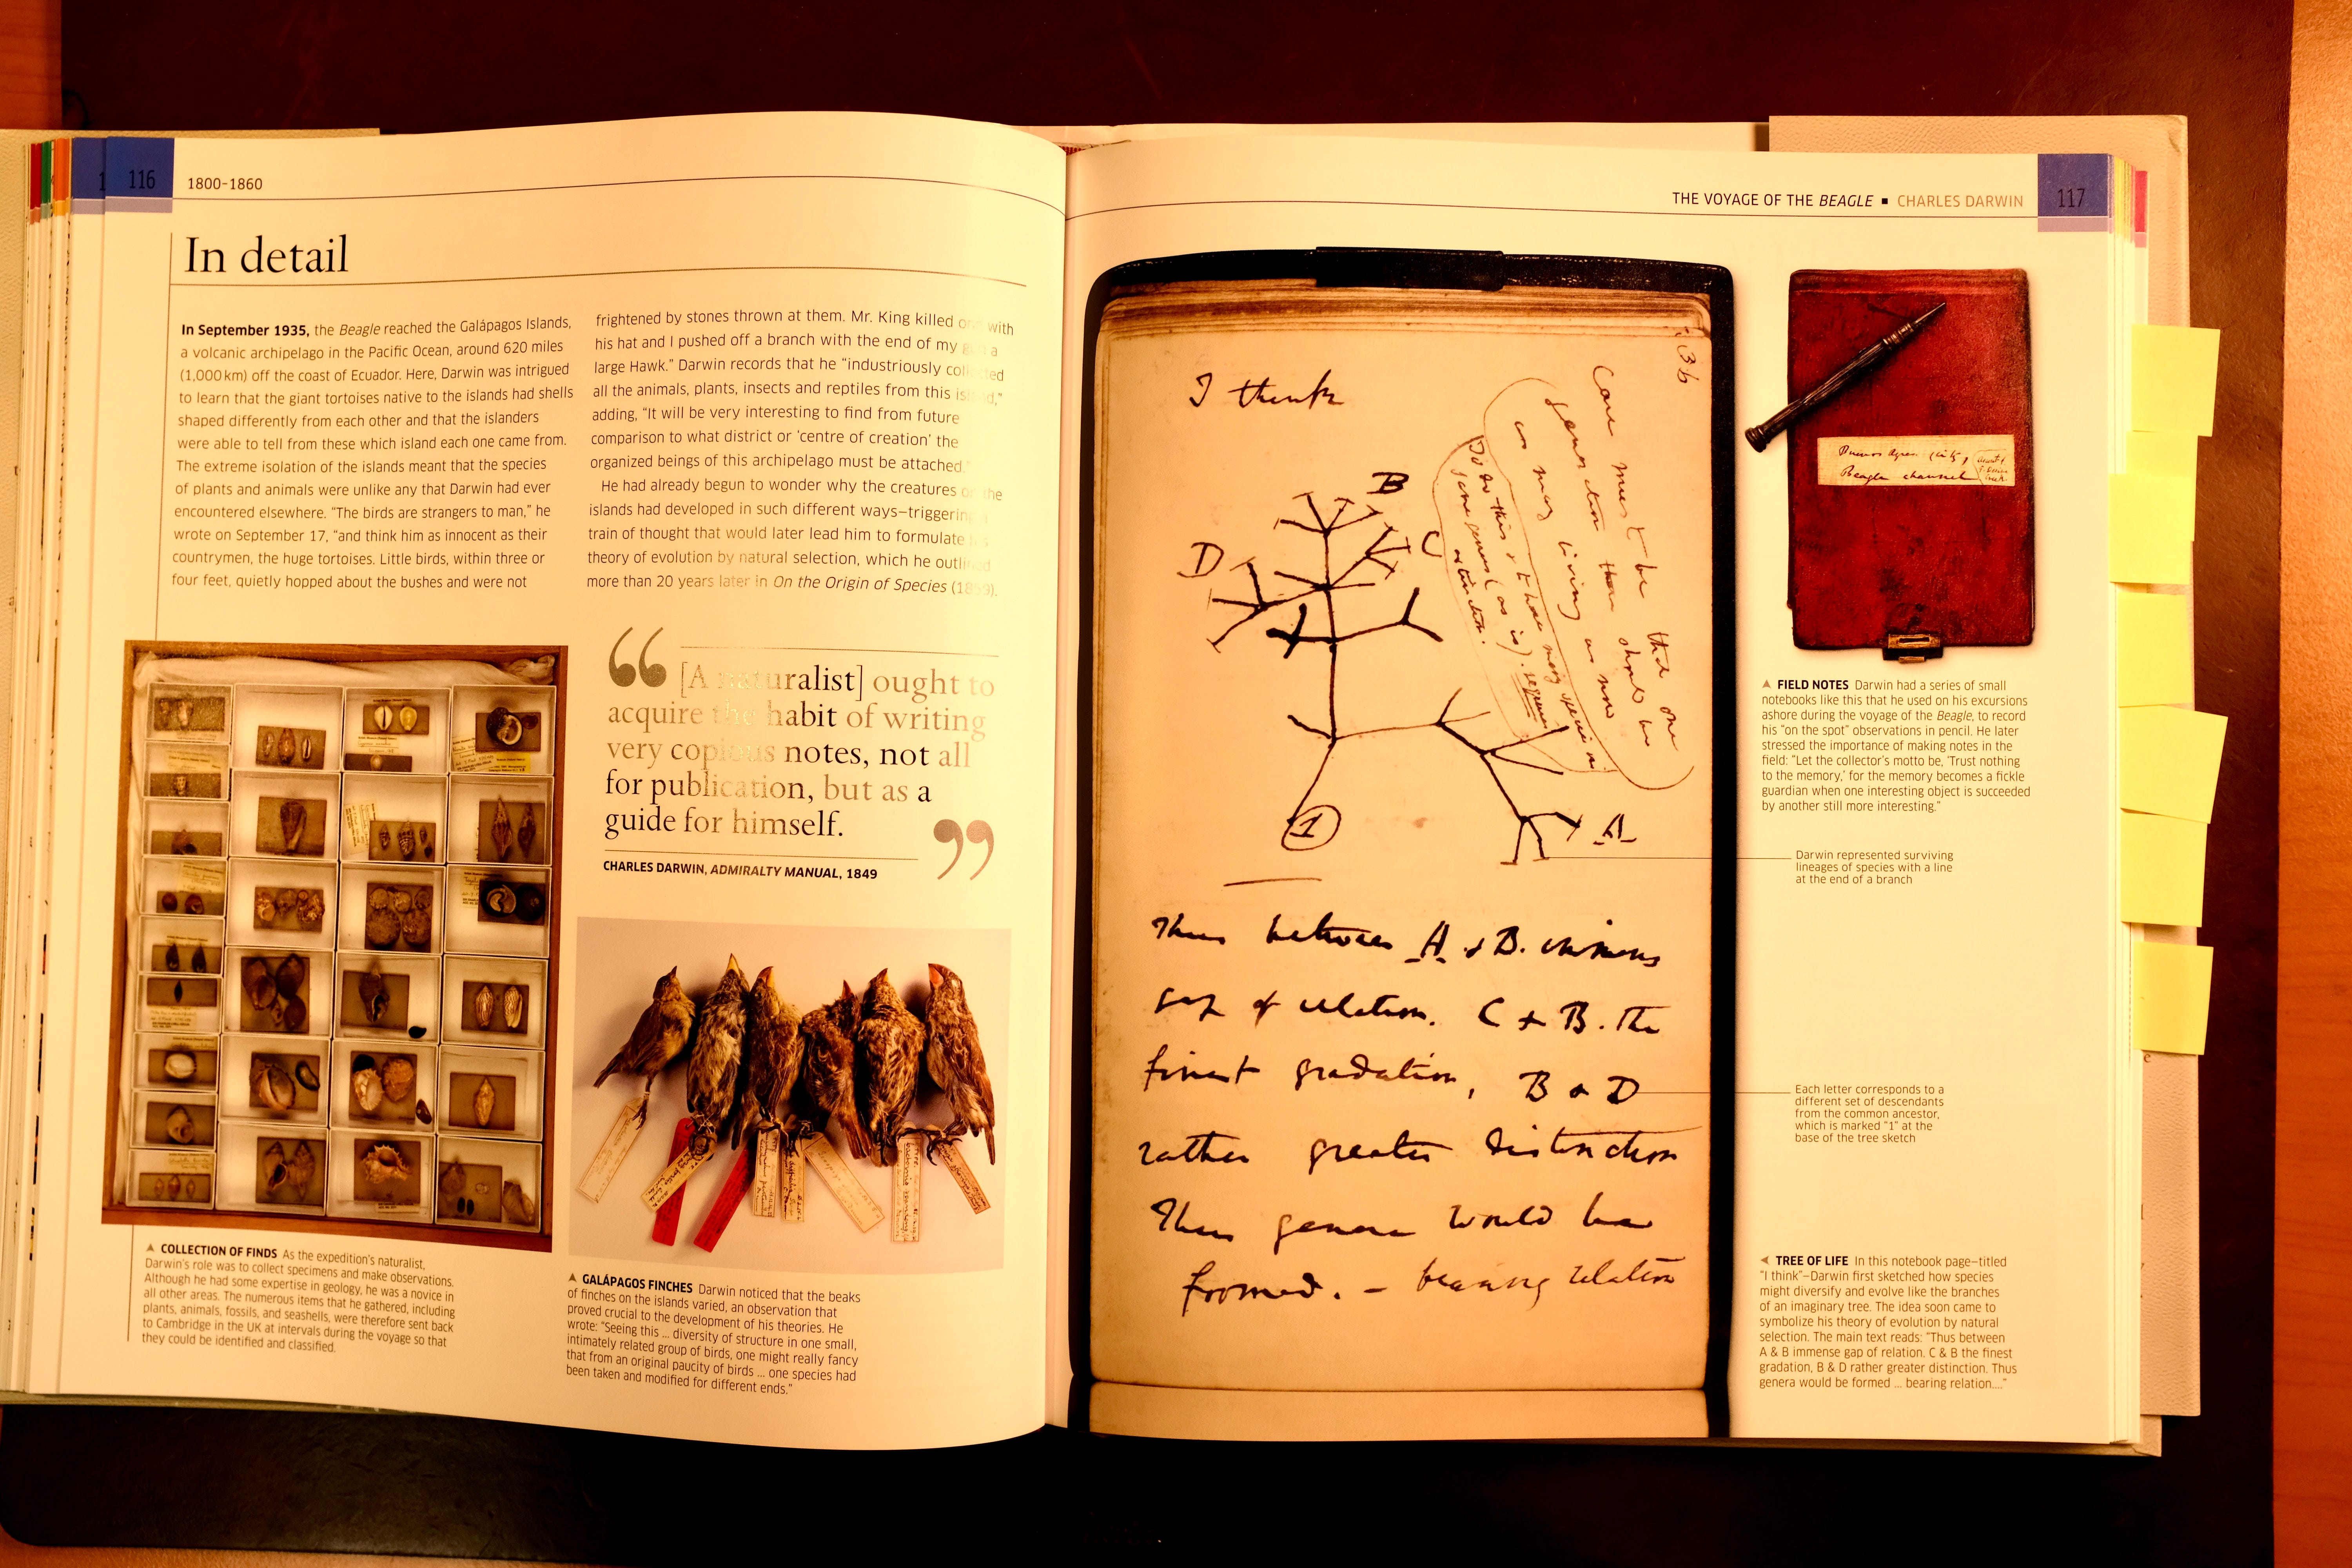 116
1800-1860
In detail
In September 1935, the Beagle reached the Galápagos Islands,
a volcanic archipelago in the Pacific Ocean, around 620 miles
(1,000 km) off the coast of Ecuador. Here, Darwin was intrigued
to learn that the giant tortoises native to the islands had shells
shaped differently from each other and that the islanders
were able to tell from these which island each one came from.
The extreme isolation of the islands meant that the species
of plants and animals were unlike any that Darwin had ever
encountered elsewhere. “The birds are strangers to man,” he
wrote on September 17, “and think him as innocent as their
countrymen, the huge tortoises. Little birds, within three or
four feet, quietly hopped about the bushes and were not
frightened by stones thrown at them. Mr. King killed one with
his hat and I pushed off a branch with the end of my gun a
large Hawk.” Darwin records that he “industriously collected
all the animals, plants, insects and reptiles from this island,”
adding, “It will be very interesting to find from future
comparison to what district or ‘centre of creation’ the
organized beings of this archipelago must be attached.”
He had already begun to wonder why the creatures on the
islands had developed in such different ways—triggering a
train of thought that would later lead him to formulate his
theory of evolution by natural selection, which he outlined
more than 20 years later in On the Origin of Species (1859).
“[A naturalist] ought to
acquire the habit of writing
very copious notes, not all
for publication, but as a
guide for himself.”
CHARLES DARWIN, ADMIRALTY MANUAL, 1849
COLLECTION OF FINDS As the expedition's naturalist,
Darwin's role was to collect specimens and make observations.
Although he had some expertise in geology, he was a novice in
all other areas. The numerous items that he gathered, including
plants, animals, fossils, and seashells, were therefore sent back
to Cambridge in the UK at intervals during the voyage so that
they could be identified and classified.
GALÁPAGOS FINCHES Darwin noticed that the beaks
of finches on the islands varied, an observation that
proved crucial to the development of his theories. He
wrote: “Seeing this ... diversity of structure in one small,
intimately related group of birds, one might really fancy
that from an original paucity of birds ... one species had
been taken and modified for different ends.”
THE VOYAGE OF THE BEAGLE ■ CHARLES DARWIN
117
36
I think
Case must be that one
generation then should be
as many living as now
To do this & to have many species in
same genus (as is). requires
extinction.
B
C
D
A
1
Thus between A & B. immens
gap of relation. C & B. the
finest gradation, B & D
rather greater distinction
Thus genera would be
formed. – bearing relation
Buenos Ayres
Beagle channel
FIELD NOTES Darwin had a series of small
notebooks like this that he used on his excursions
ashore during the voyage of the Beagle, to record
his “on the spot” observations in pencil. He later
stressed the importance of making notes in the
field: “Let the collector's motto be, ‘Trust nothing
to the memory,’ for the memory becomes a fickle
guardian when one interesting object is succeeded
by another still more interesting.”
Darwin represented surviving
lineages of species with a line
at the end of a branch
Each letter corresponds to a
different set of descendants
from the common ancestor,
which is marked “1” at the
base of the tree sketch
TREE OF LIFE In this notebook page—titled
“I think”—Darwin first sketched how species
might diversify and evolve like the branches
of an imaginary tree. The idea soon came to
symbolize his theory of evolution by natural
selection. The main text reads: “Thus between
A & B immense gap of relation. C & B the finest
gradation, B & D rather greater distinction. Thus
genera would be formed ... bearing relation....”